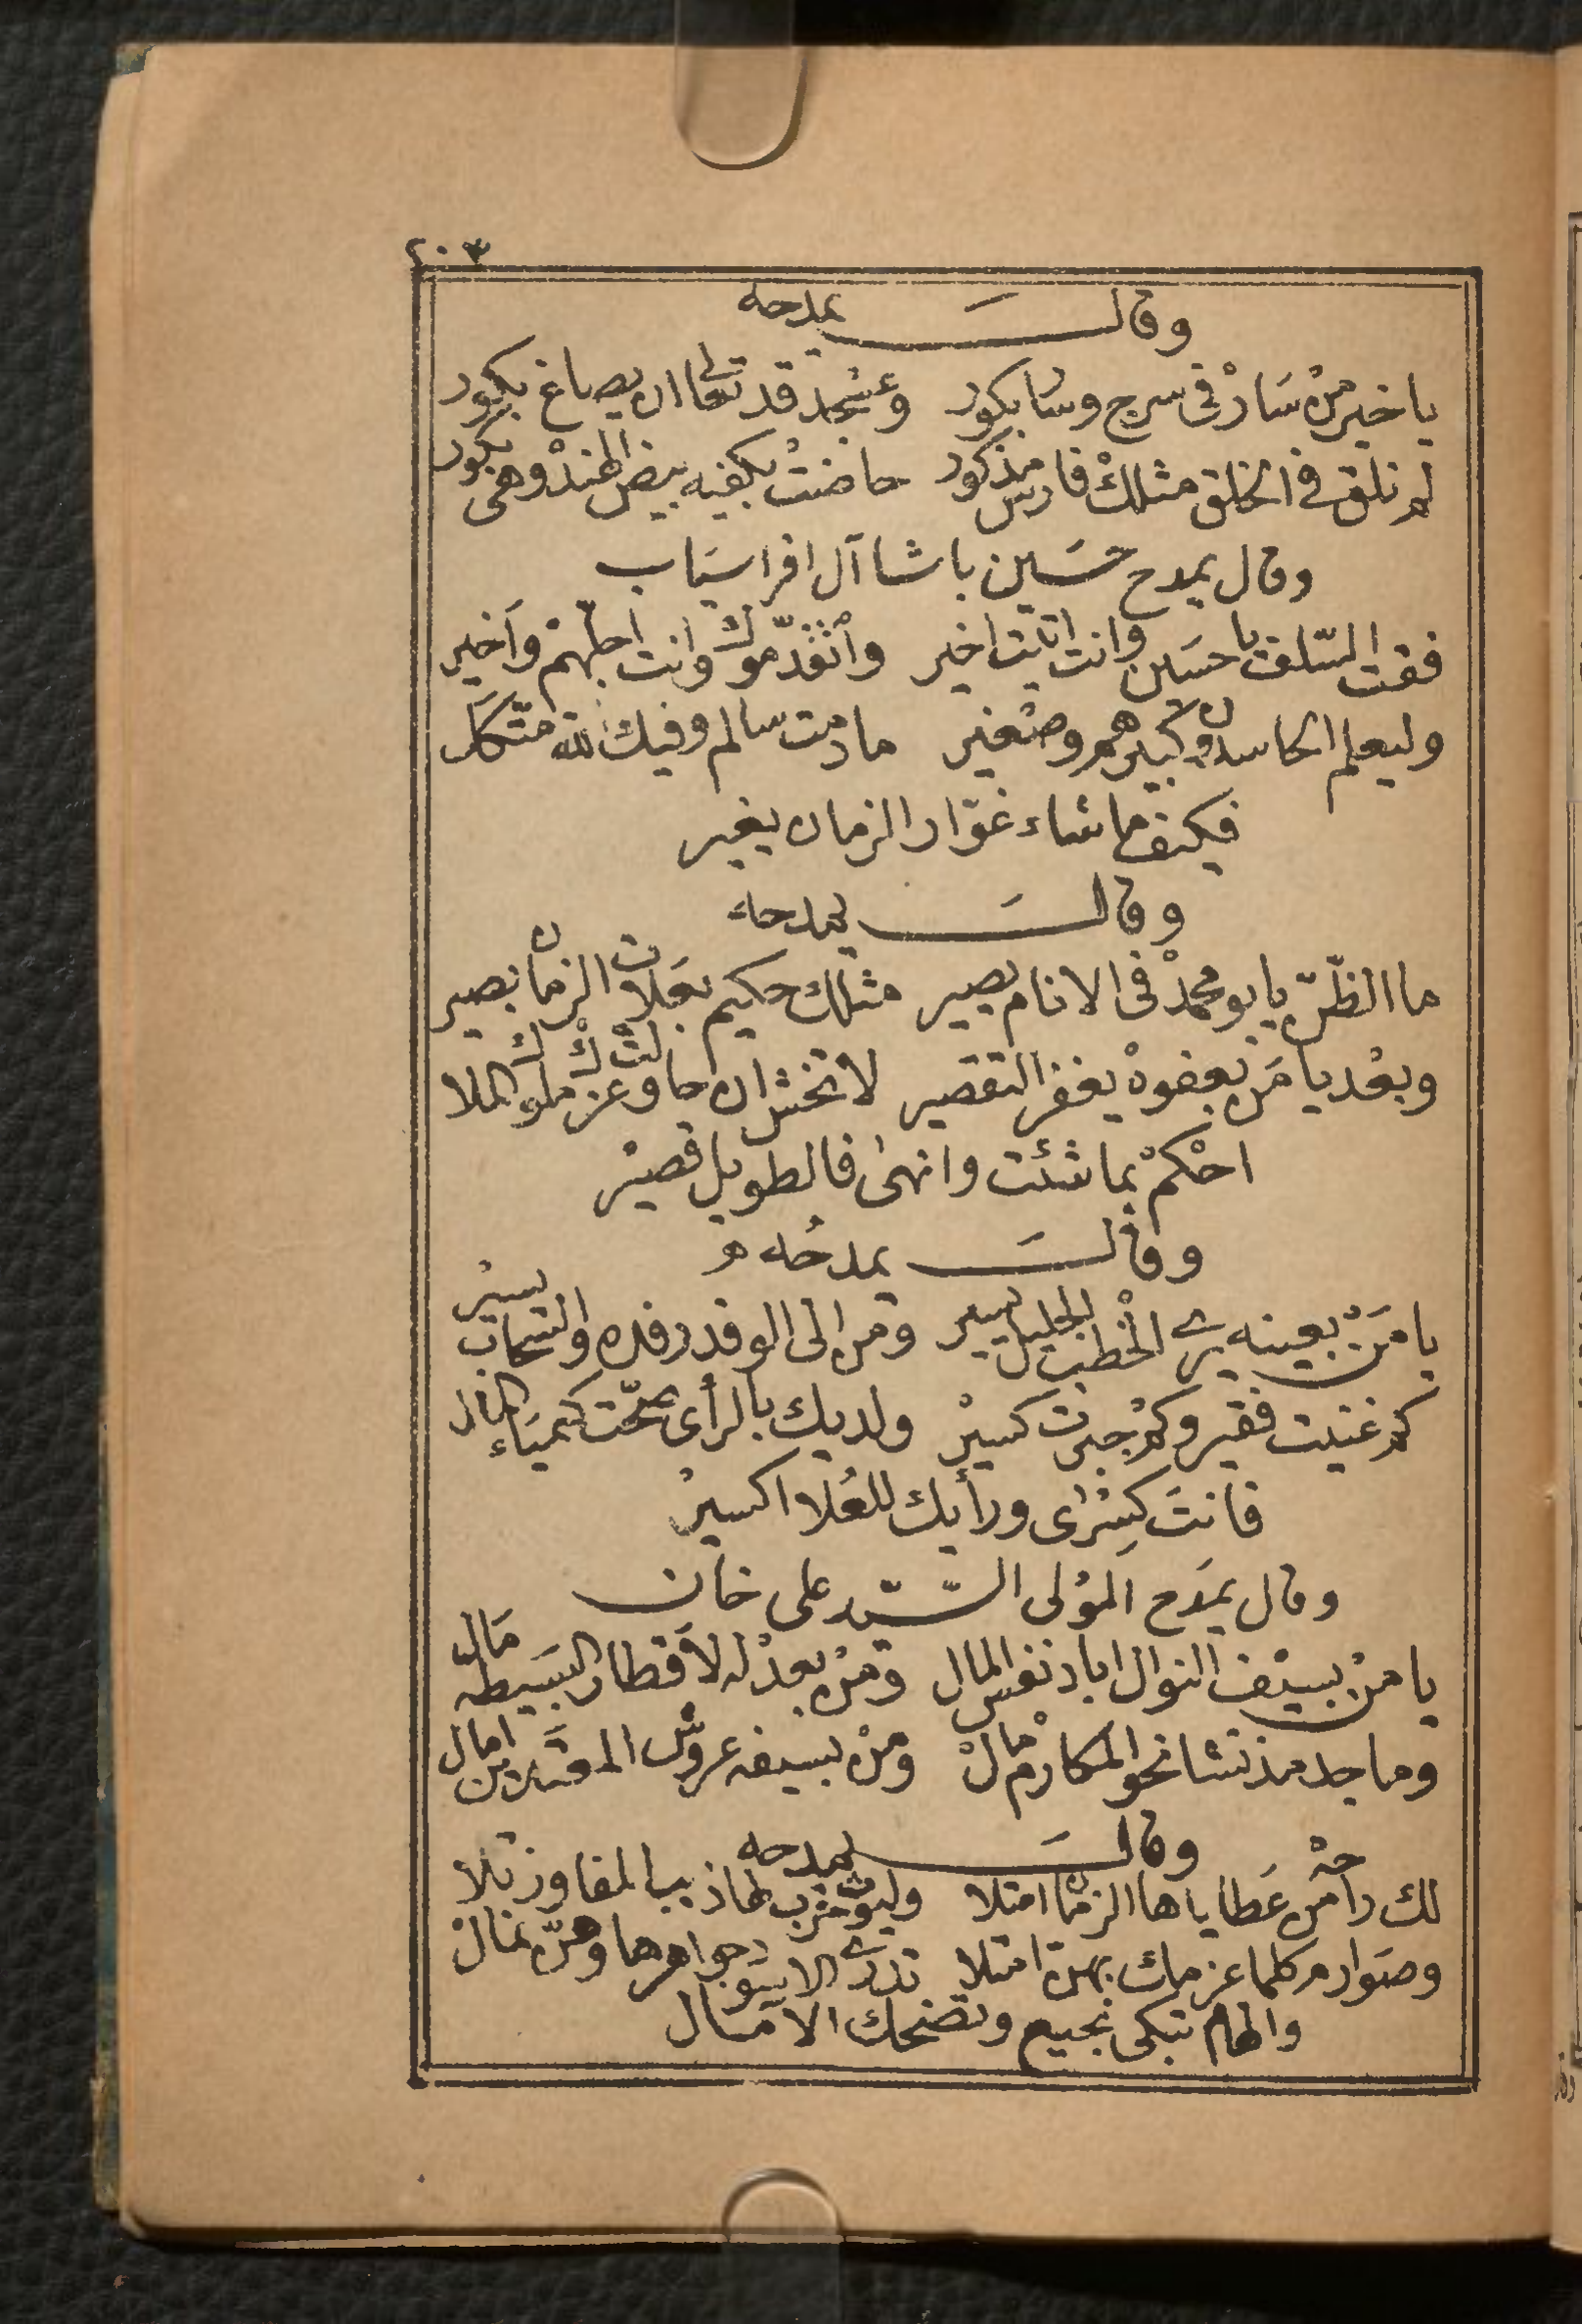 ٢٠٣
وقال يمدحه
يا خير من سَارْ فى سرج وسار بكور وعسْجد قد تعالى ان يصاغ بكور
لم نلق فى الخلق مثلكْ فارس مذكور حاضتْ بكفيه بيض الهندْ وهى بكور
وقال يمدح حسَين باشا آل افراسيَاب
فقت السّلف يا حسَين وانت اتيت اخير واتقدّموك وانت اجلّهمْ وأخير
وليعلم الحاسدون كبيرهم وصْغير ما دمت سالم وفيك لله متّكَل
فكيف ما شاء غوّار الزمان يغير
وقال يمدحه
ما الظّنّ يا بو محمدْ فى الانام بصير مثلك حكيم بعَلات الزمان بصير
وبعْد يا مَن بعفوهْ يغفر التقصير لا تخش ان حاولتْكْ وعز ملوك الملا
احْكمْ بما شئت وانهىٰ فالطويل قصيرْ
وقال يمدحُه
يا مَنْ بعينه يرى الخْطب الجليل يسير ومن الى الوفد رفده والسّحاب يسيرْ
كم غنيت فقير وكمْ جبرت كسيرْ ولديك بالرأى صحّت كيميَاء المال
فانتَ كِسْرٰى ورأيك للعُلا اكسيرْ
وقال يمَدح المَوْلى السّيّد على خان
يا منْ بسيْف النوال اباد نفس المال ومنْ بعدْله لأقطار البسَيطه مَال
وماجد مذ نشا نحو المكارمْ مالْ ومنْ بسيفه عروش المعتدين امال
وقال يمدحه
لك راحهْ من عَطاياها الزمَانْ امتلا وليوث حرب لها ذيب المفاوز تلا
وصَوارم كلما عزمك بهن امتلا تدرى الاسود جواهرها وهنّ نمالْ
والهام تبكى نجيع وتضحك الآمَال